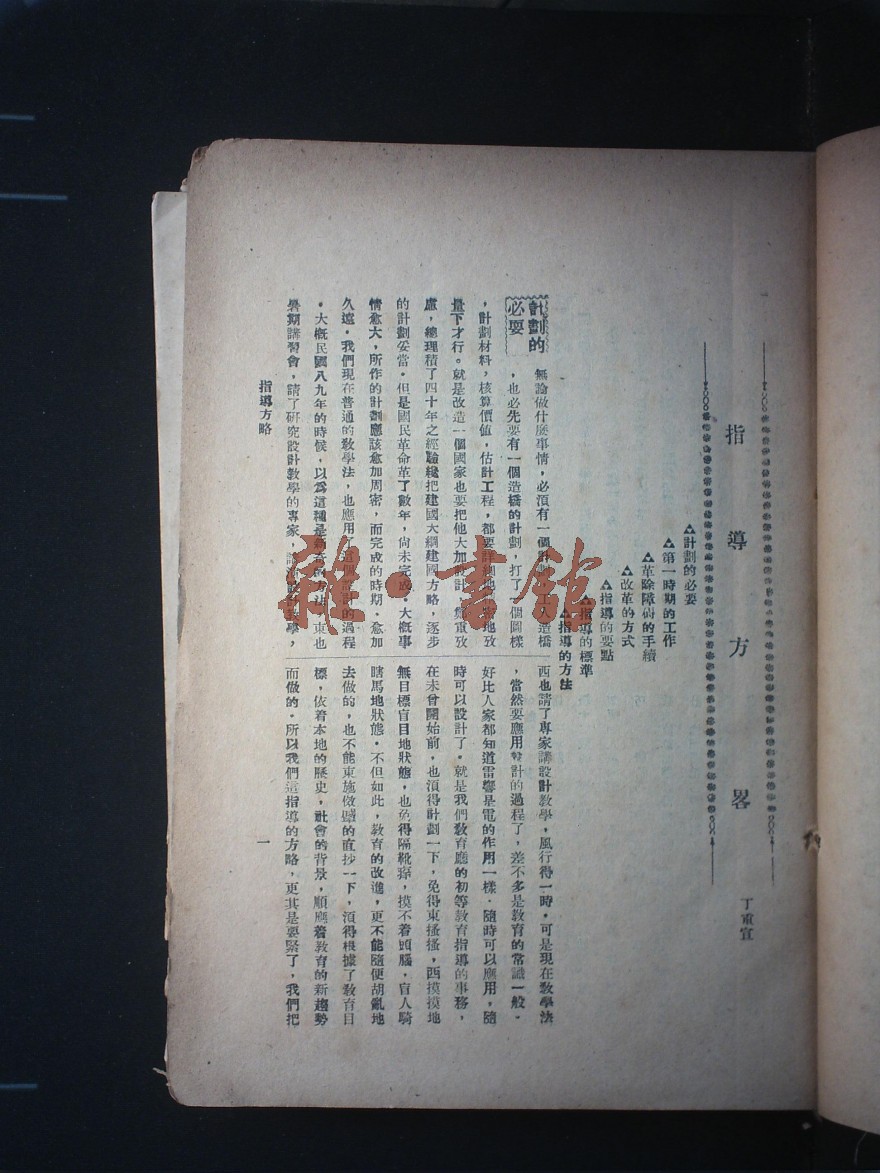 指導方畧
丁重宣
△計劃的必要
△第一時期的工作
△革除障碍的手續
△改革的方式
△指導的要點
△指導的標準
△指導的方法
計劃的
必要
無論做什麽事情，必須有一個計劃，造橋
，也必先要有一個造橋的計劃，打了一個圖樣
，計劃材料，核算價值，估計工程，都要詳細地
量下才行。就是改造一個國家也要把他大加設計，鄭重攷
慮，總理積了四十年之經驗纔把建國大綱建國方略，逐步
的計劃妥當。但是國民革命革了數年，尙未完成。大概事
情愈大，所作的計劃應該愈加周密，而完成的時期，愈加
久遠。我們現在普通的敎學法，也應用了這個設計的過程
。大槪民國八九年的時候，以爲這種是新奇的方法，東也
暑期講習會，請了研究設計敎學的專家，講演設計敎學，
西也請了專家講設計敎學，風行得一時。可是現在敎學法
，當然要應用設計的過程了，差不多是敎育的常識一般。
好比人家都知道雷響是電的作用一樣，隨時可以應用，隨
時可以設計了。就是我們敎育廳的初等敎育指導的事務，
在未曾開始前，也須得計劃一下，免得東搔搔，西摸摸地
無目標盲目地狀態，也免得隔靴痒，摸不着頭腦，盲人騎
瞎馬地狀態。不但如此，敎育的改進，更不能隨便胡亂地
去做的，也不能東施倣顰的直抄一下，須得根據了敎育目
標，依着本地的歷史，社會的背景，順應着敎育的新趨勢
而做的。所以我們這指導的方略，更其是要緊了，我們把
指導方略
一
雜·書館